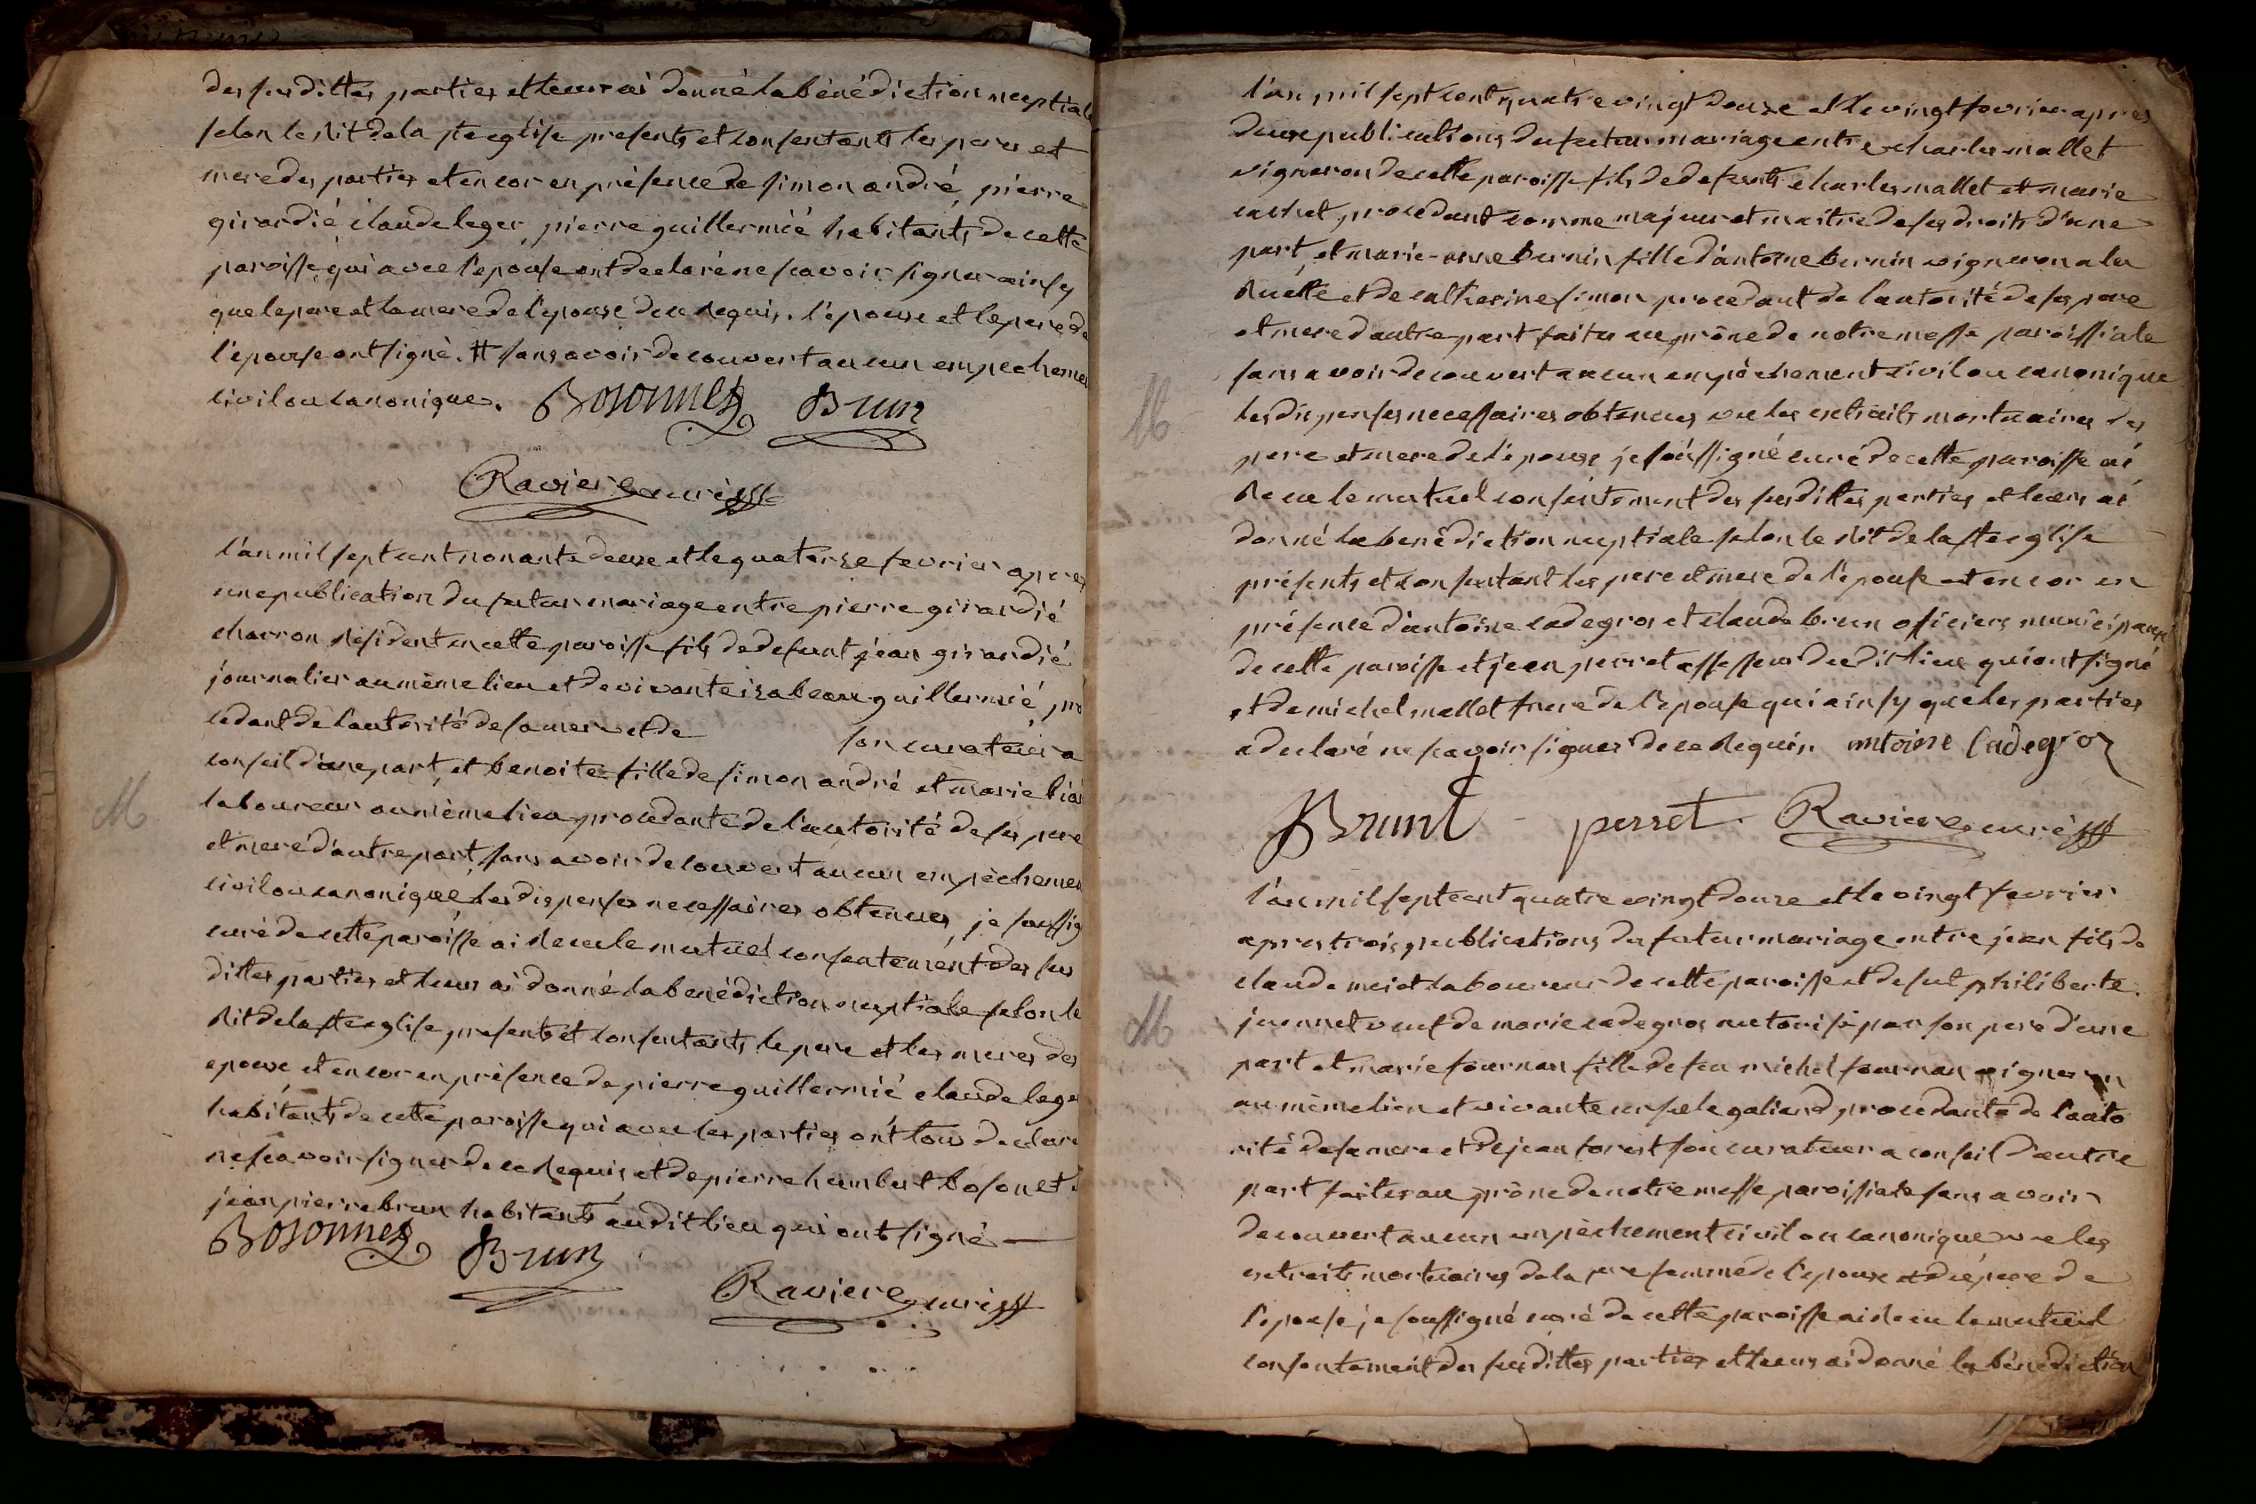 des susdittes parties et leur ai donné la bénédiction nuptiale
selon le Rit de la ste eglise presents et consentants les peres et
mere des parties et encor en présence de simon andré, pierre
girardié claude leger, pierre guillermié habitants de cette
paroisse qui avec l'epouse ont declaré ne scavoir signer ainsy
que le pere et la mere de l'epouse de ce Requis. l'epoux et le pere de
l'epouse ont signé. # sans avoir decouvert aucun empechemen
civil ou canonique. Bosonnet Brun
Raviere curé
l'an mil sept cent nonante deux et le quatorze fevrier apres
une publication du futur mariage entre pierre girardié
charron Résident en cette paroisse fils de defunt jéan girardié
journalier au même lieu et de vivante isabeau guillermié, pro
cedant de l'autorité de sa mere et de son curateur a
conseil d'une part, et benoite fille de simon andré et marie
laboureur au même lieu procedante de l'autorité de ses pere
et mere d'autre part, sans avoir decouvert aucun empêchemen
civil ou canonique, les dispenses necessaires obtenues, je soussig
curé de cette paroisse ai Recu le mutuel consentement des sus
dittes parties et leur ai donné la benédiction nuptiale selon le
Rit de la ste eglise, presents et consentants le pere et les meres des
epoux et encor en présence de pierre guillermié claude lege
habitants de cette paroisse qui avec les parties ont tous declaré
ne scavoir signer de ce Requis et de pierre humbert bosonet
jean pierre brun habitants audit lieu qui ont signé
Bosonnet Brun
Raviere curé
M
l'an mil sept cent quatre vingt douze et le vingt fevrier apres
deux publications du futur mariage entre charles mallet
vigneron de cette paroisse fils de defunts charles mallet et marie
cachet, procedant comme majeur et maitre de ses droits d'une
part, et marie-anne bernin fille d'antoine bernin vigneron a la
Ruette et de catherine simon procedant de l'autorité de ses pere
et mere d'autre part faites au prône de notre messe paroissiale
sans avoir decouvert aucun empêchement civil ou canonique
les dispenses necessaires obtenues vu les extraits mortuaires des
pere et mere de l'epoux je soussigné curé de cette paroisse ai
Recu le mutuel consentement des susdittes parties et leur ai
donné la benédiction nuptiale selon le Rit de la ste eglise
présents et consentant les pere et mere de l'epouse et encor en
présence d'antoine cadegros et claude brun oficiers municipaux
de cette paroisse et jean perret assesseur dudit lieu qui ont signé
et de michel mallet frere de l'epouse qui ainsy que les parties
a declaré ne scavoir signer de ce Requis. antoine Cadegros
Brunt perret. Raviere curé
M
l'an mil sept cent quatre vingt douze et le vingt fevrier
apres trois publications du futur mariage entre jean fils de
claude laboureur de cette paroisse et de fut philiberte
juennet veuf de marie cadegros autorisé par son pere d'une
part et marie fournan fille de feu michel fournan vigneron
au même lieu et vivante galiand, procedante de l'auto
rité de sa mere et de jean forest son curateur a conseil d'autre
part faites au prône de notre messe paroissiale sans avoir
decouvert aucun empêchement civil ou canonique vu les
extraits mortuaires de la femme de l'epoux et du pere de
l'epouse je soussigné curé de cette paroisse ai Recu le mutuel
consentement des susdittes parties et leur ai donné la bénédiction
M